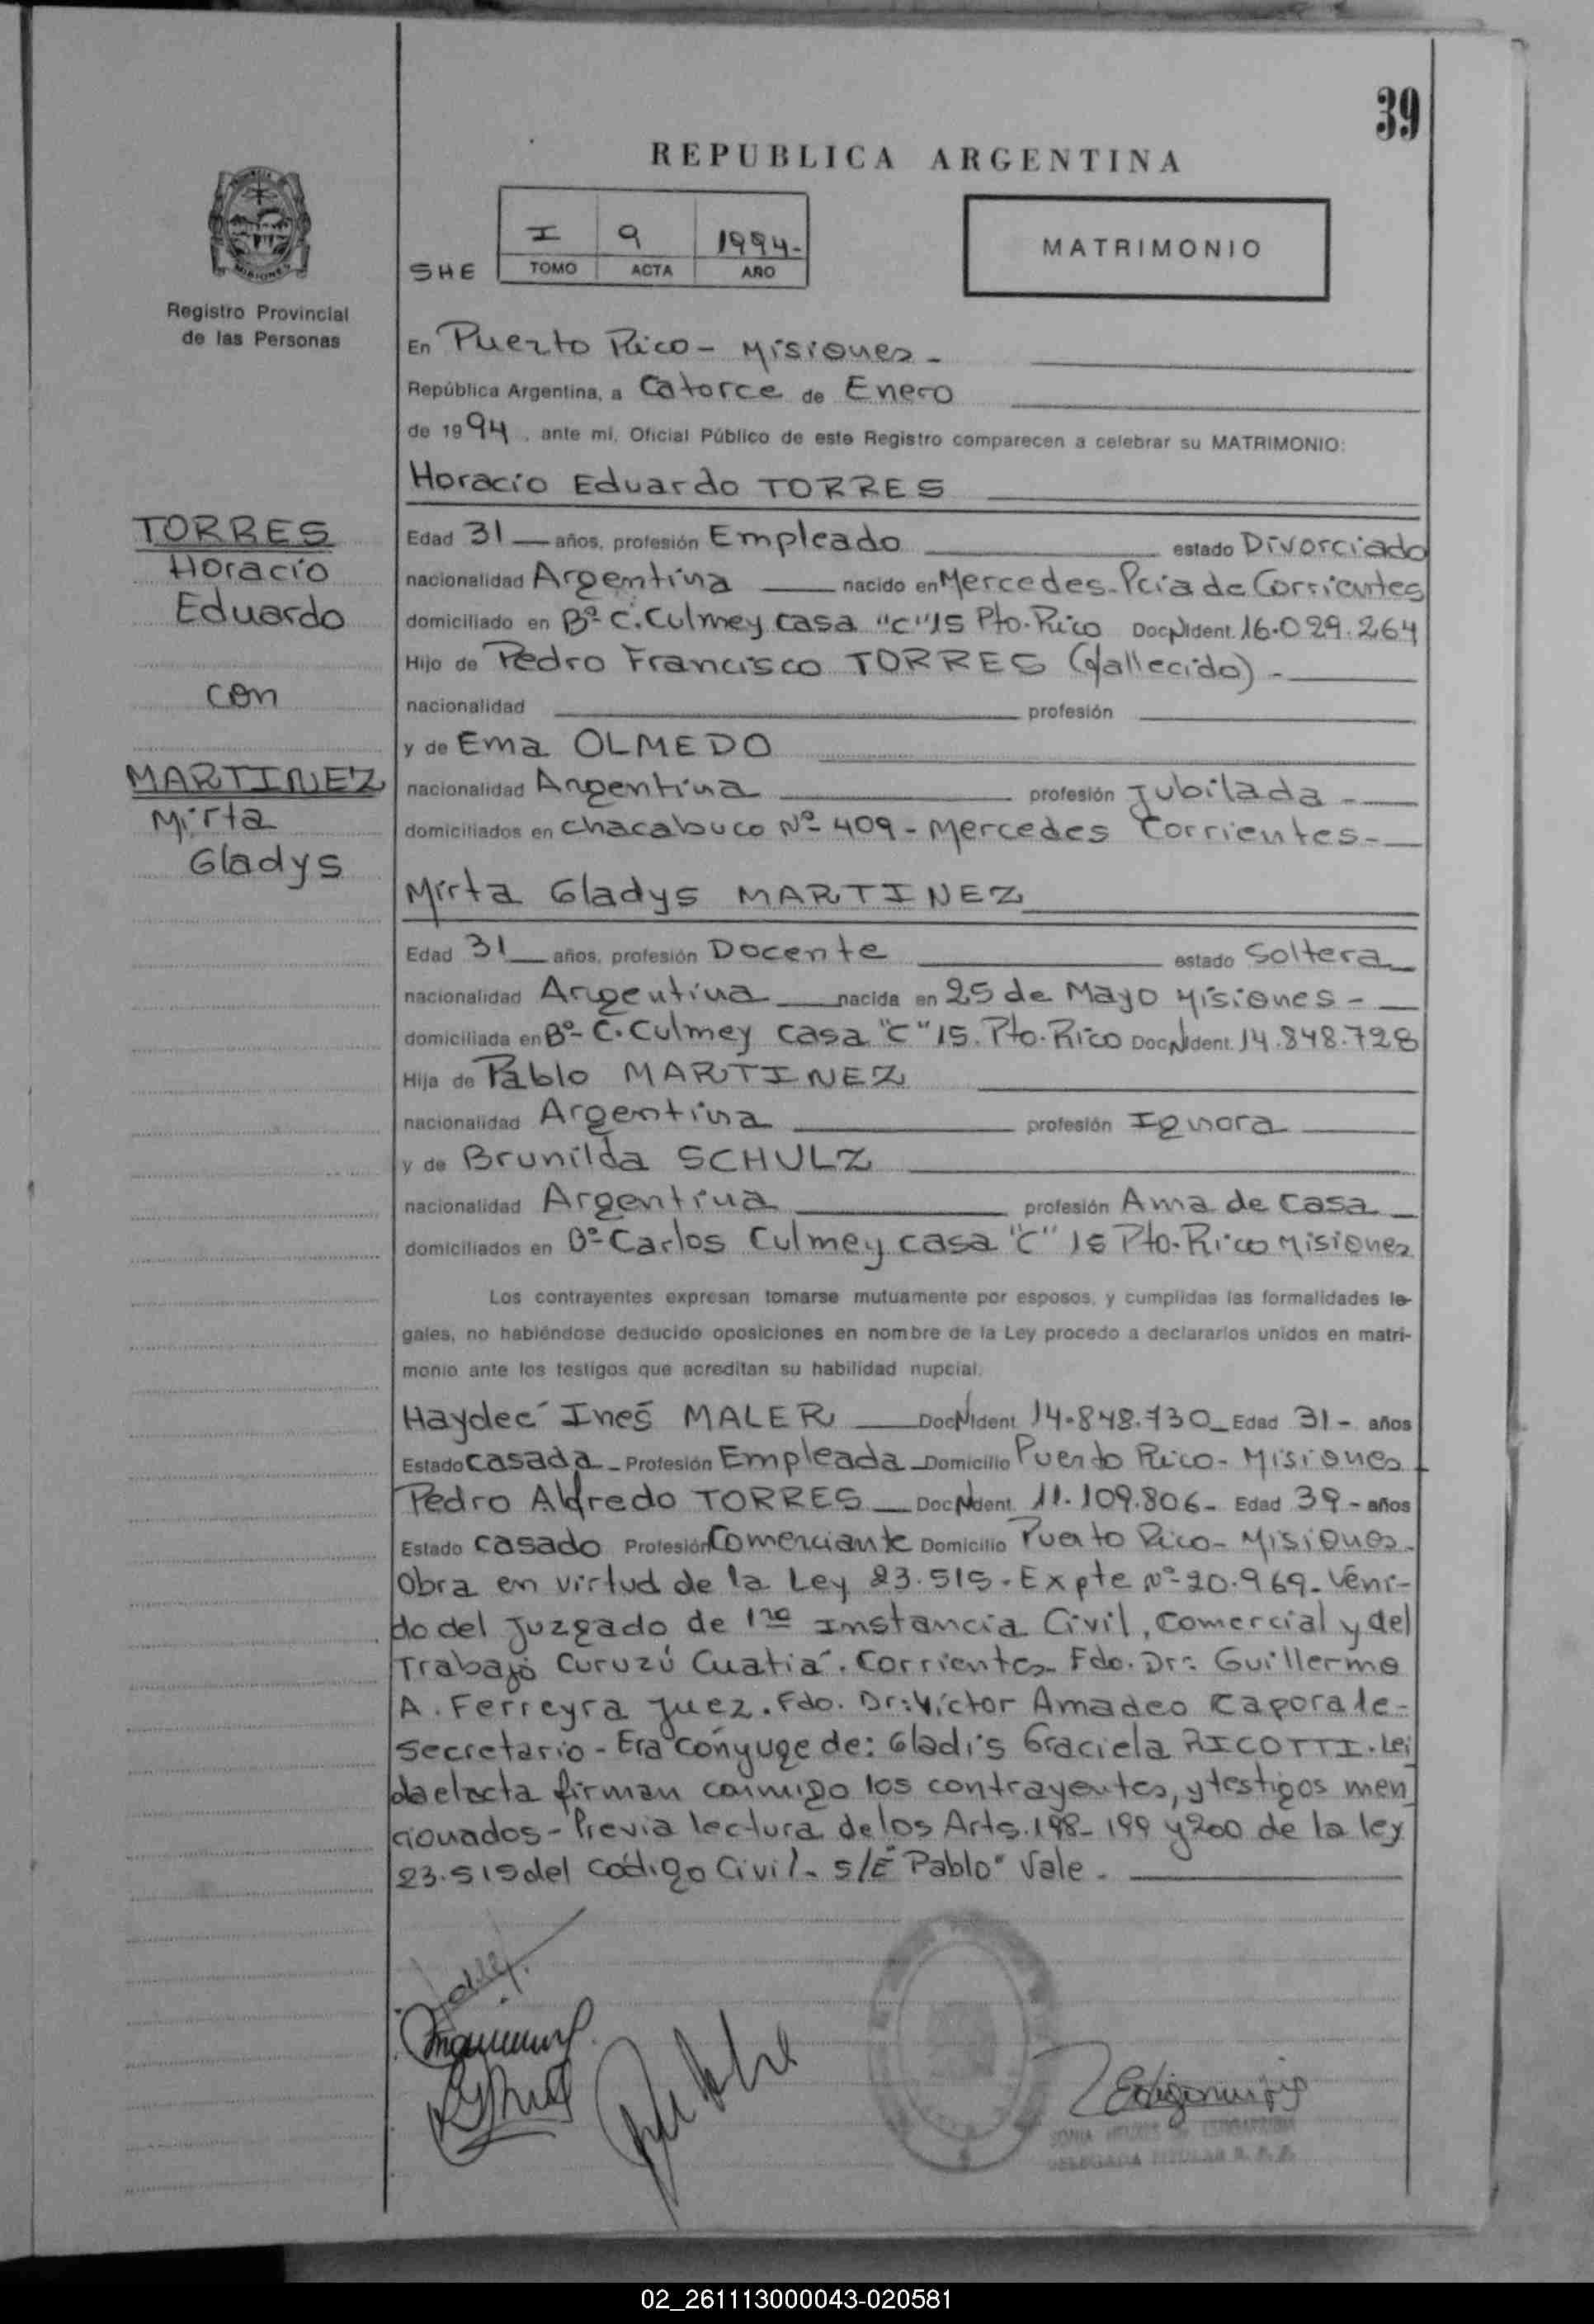 39
REPUBLICA ARGENTINA
I 9 1994-
SHE TOMO ACTA AÑO
MATRIMONIO
Registro Provincial
de las Personas
En Puerto Rico - Misiones -
República Argentina, a Catorce de Enero
de 1994, ante mi, Oficial Público de este Registro comparecen a celebrar su MATRIMONIO:
Horacio Eduardo TORRES
TORRES
Horacio
Eduardo
con
MARTINEZ
Mirta
Gladys
Edad 31 años, profesión Empleado estado Divorciado
nacionalidad Argentina nacido en Mercedes-Pcia de Corrientes
domiciliado en Bº C. Culmey casa "C" 15 Pto. Rico Doc N Ident. 16.029.264
Hijo de Pedro Francisco TORRES (fallecido) -
nacionalidad profesión
y de Ema OLMEDO
nacionalidad Argentina profesión Jubilada -
domiciliados en Chacabuco Nº 409 - Mercedes Corrientes-
Mirta Gladys MARTINEZ
Edad 31 años, profesión Docente estado Soltera
nacionalidad Argentina nacida en 25 de Mayo Misiones -
domiciliada en Bº C. Culmey casa "C" 15. Pto. Rico Doc N Ident. 14.848.728
Hija de Pablo MARTINEZ
nacionalidad Argentina profesión Ignora
y de Brunilda SCHULZ
nacionalidad Argentina profesión Ama de casa
domiciliados en Bº Carlos Culmey casa "C" 15 Pto. Rico Misiones
Los contrayentes expresan tomarse mutuamente por esposos, y cumplidas las formalidades le-
gales, no habiéndose deducido oposiciones en nombre de la Ley procedo a declararlos unidos en matri-
monio ante los testigos que acreditan su habilidad nupcial.
Haydeé Inés MALER Doc N Ident 14.848.730 Edad 31 - años
Estado casada - Profesión Empleada Domicilio Puerto Rico - Misiones
Pedro Alfredo TORRES Doc N Ident. 11.109.806- Edad 39 - años
Estado casado Profesión Comerciante Domicilio Puerto Rico - Misiones.
Obra en virtud de la Ley 23.515. Expte Nº 20.969. Veni-
do del Juzgado de 1ra Instancia Civil, Comercial y del
Trabajo Curuzú Cuatiá. Corrientes. Fdo. Dr: Guillermo
A. Ferreyra Juez. Fdo. Dr: Víctor Amadeo Caporale-
Secretario - Era cónyuge de: Gladis Graciela RICOTTI. Leí
da el acta firman conmigo los contrayentes, y testigos men
cionados - Previa lectura de los Arts. 198- 199 y 200 de la ley
23.515 del código Civil. S/E "Pablo" Vale.
DELEGADA TITULAR
02_261113000043-020581